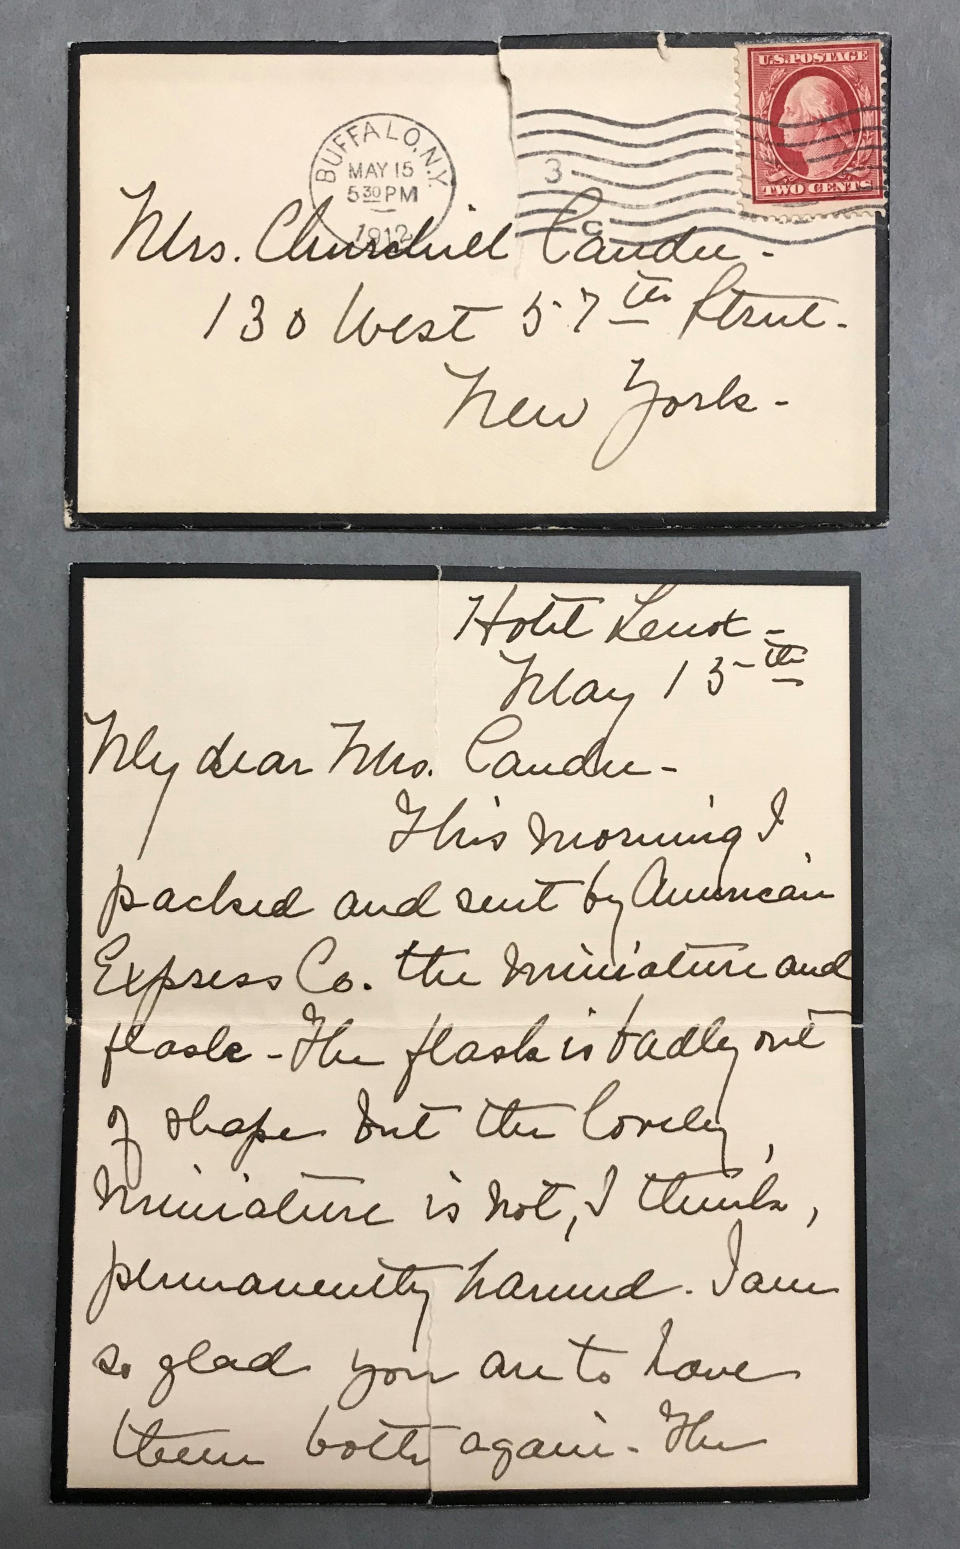 U.S. POSTAGE
TWO CENTS
BUFFALO, N.Y.
MAY 15
5 30 PM
1912
3
C
Mrs. Churchill Candee.
130 West 57th Street.
New York-
Hotel Lenox-
May 15th
My dear Mrs. Candee-
This morning I
packed and sent by American
Express Co. the miniature and
flask - The flask is badly out
of shape but the lovely
miniature is not, I think,
permanently harmed. I am
so glad you are to have
them both again - The